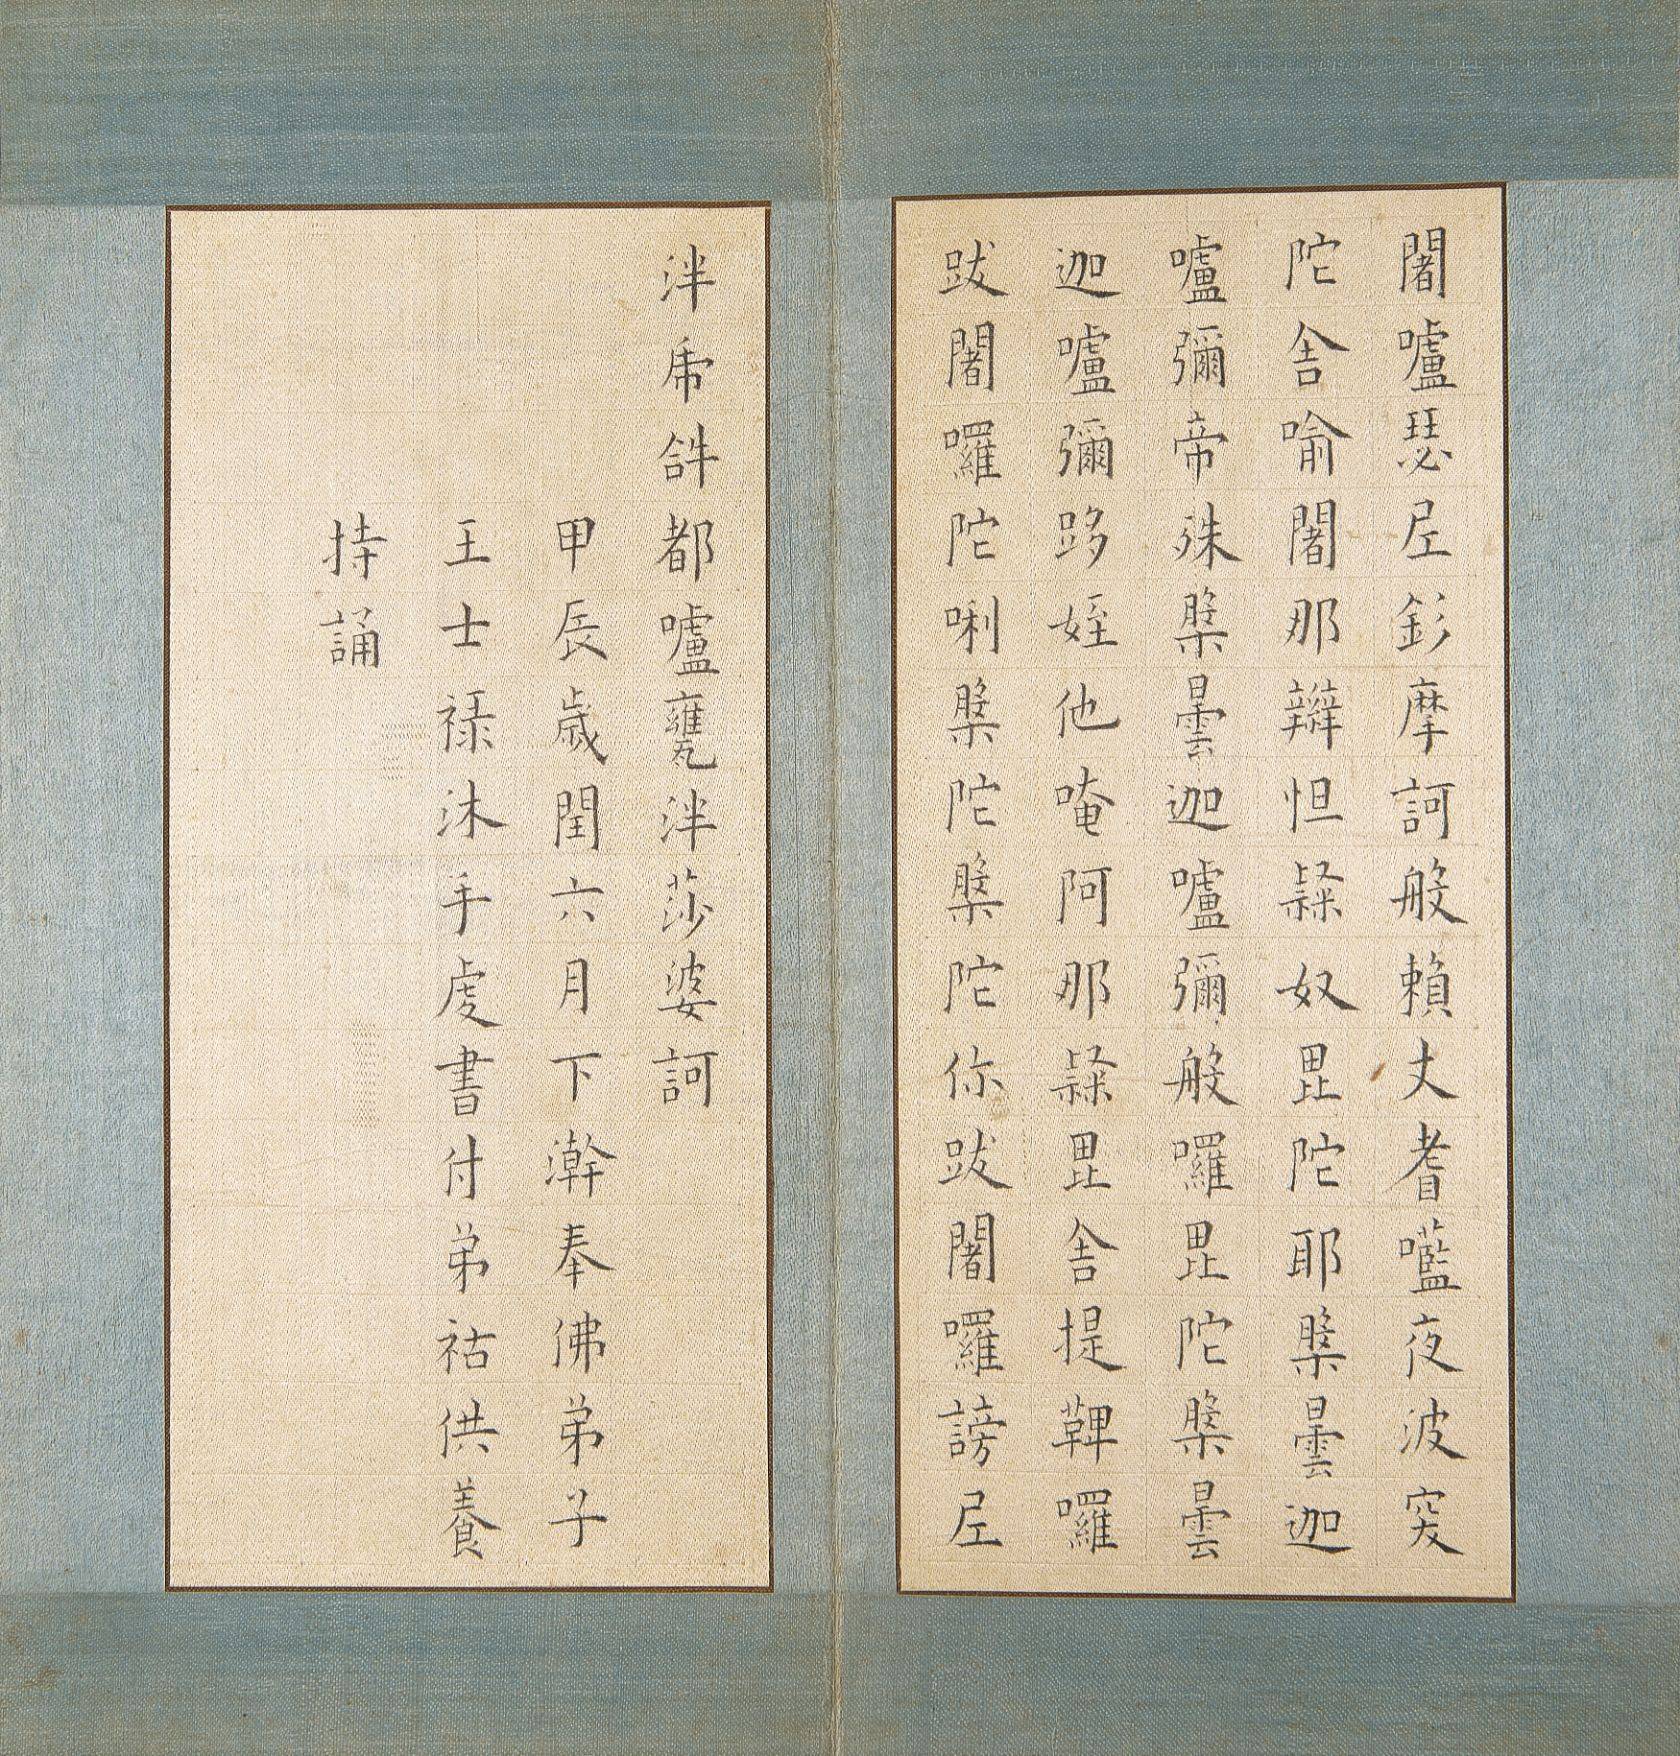 闍嚧瑟尼釤摩訶般賴丈耆㘕夜波突
陀舍喻闍那辮怛隸奴毘陀耶槃曇迦
嚧彌帝殊槃曇迦嚧彌般囉毘陀槃曇
迦嚧彌跢姪他唵阿那隸毘舍提鞞囉
跋闍囉陀唎槃陀槃陀你跋闍囉謗尼
泮虎𤙖都嚧甕泮莎婆訶
甲辰歲閏六月下澣奉佛弟子
王士祿沐手虔書付弟祜供養
持誦